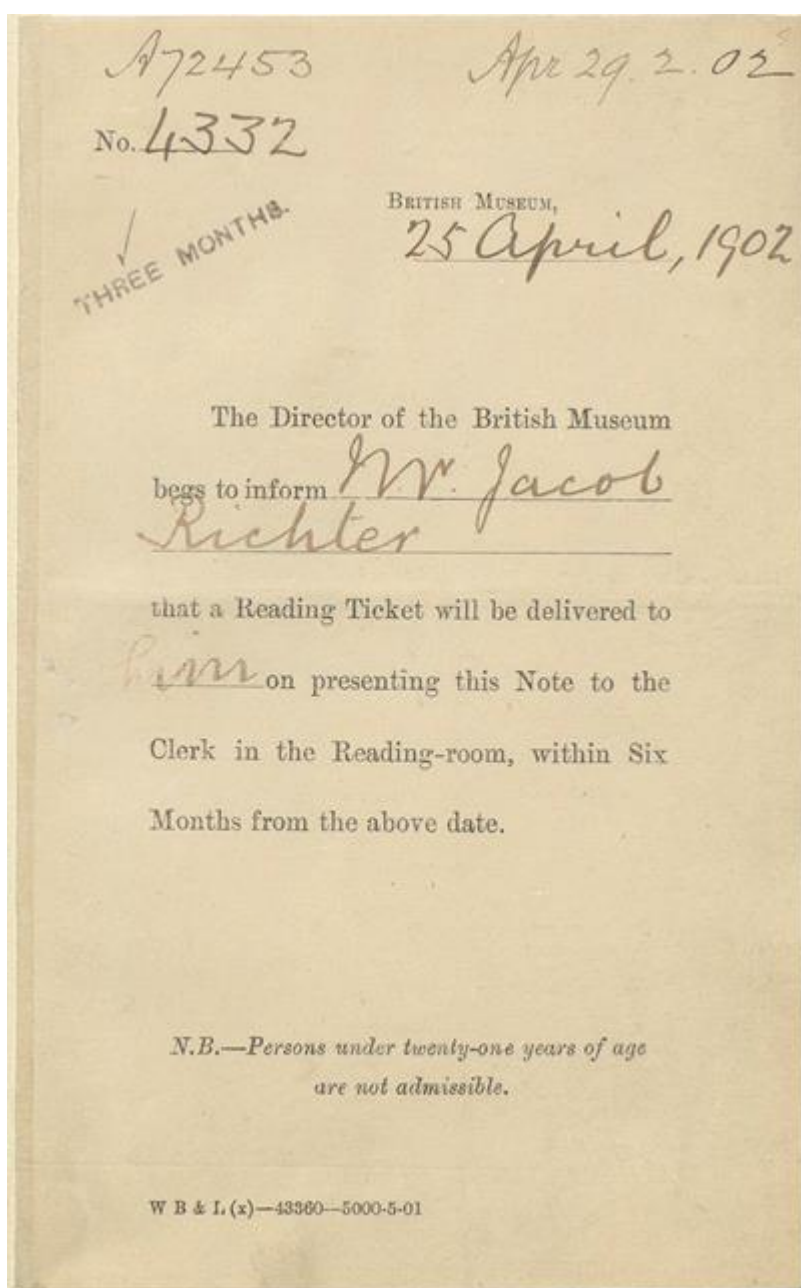 A72453 Apr 29. 2. 02
No. 4332
THREE MONTHS.
BRITISH MUSEUM,
25 April, 1902
The Director of the British Museum
begs to inform Mr. Jacob
Richter
that a Reading Ticket will be delivered to
him on presenting this Note to the
Clerk in the Reading-room, within Six
Months from the above date.
N.B.—Persons under twenty-one years of age
are not admissible.
W B & L (x)—43360—5000-5-01